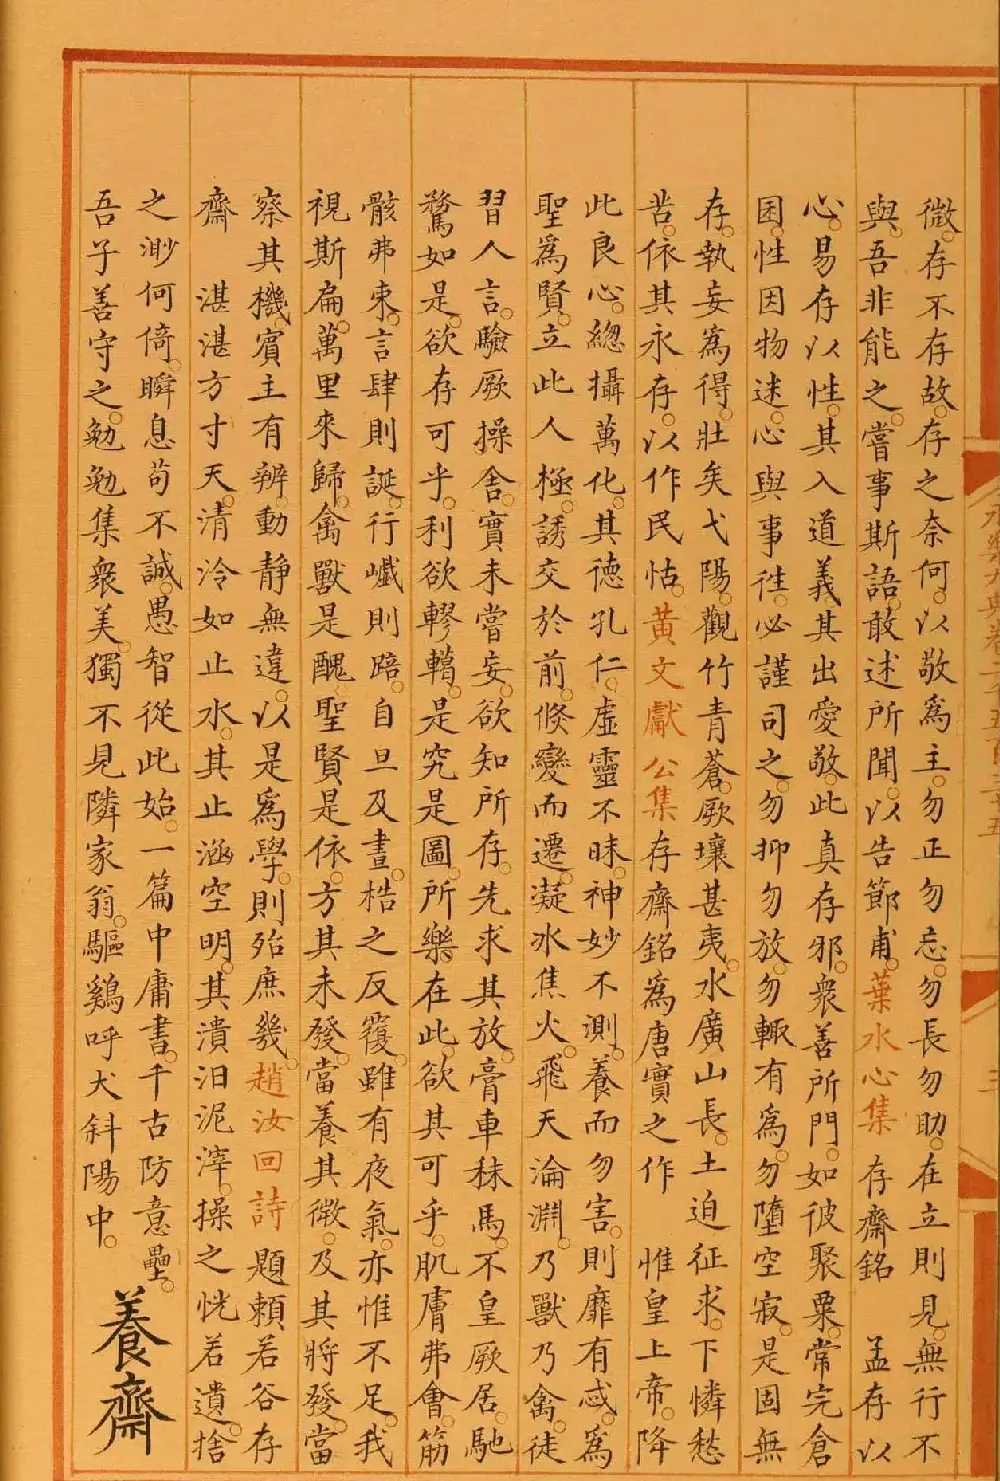 微。存不存故。存之奈何。以敬爲主。勿正勿忘。勿長勿助。在立則見。無行不
與。吾非能之。嘗事斯語。敢述所聞。以告節甫。葉水心集 存齋銘 孟存以
心。易存以性。其入道義其出愛敬。此真存邪。衆善所門。如彼聚粟。常完倉
囷。性因物迷。心與事徃。必謹司之。勿抑勿放。勿輙有爲。勿墮空寂。是固無
存。執妄爲得。壯矣弋陽。觀竹青蒼。厥壤甚夷。水廣山長。土迫征求。下憐愁
苦。依其永存。以作民怙。黃文獻公集存齋銘爲唐實之作 惟皇上帝。降
此良心。緫攝萬化。其德孔仁。虛靈不昧。神妙不測。養而勿害。則靡有忒。爲
聖爲賢。立此人極。誘交於前。倐變而遷。凝冰焦火。飛天淪淵。乃獸乃禽。徒
習人言。驗厥操舍。實未嘗妄。欲知所存。先求其放。膏車秣馬。不皇厥居。馳
騖如是。欲存可乎。利欲轇轕。是究是圖。所樂在此。欲其可乎。肌膚弗會。筋
骸弗束。言肆則誕。行巇則踣。自旦及晝。梏之反覆。雖有夜氣。亦惟不足。我
視斯扁。萬里來歸。禽獸是醜。聖賢是依。方其未發。當養其微。及其將發。當
察其機。賓主有辨。動靜無違。以是爲學。則殆庶幾。趙汝回詩 題賴若谷存
齋 湛湛方寸天。清泠如止水。其止涵空明。其潰汩泥滓。操之恍若遺。捨
之渺何倚。瞬息苟不誠。愚智從此始。一篇中庸書。千古防意壘。
吾子善守之。勉勉集衆美。獨不見隣家翁。驅鷄呼犬斜陽中。
養齋